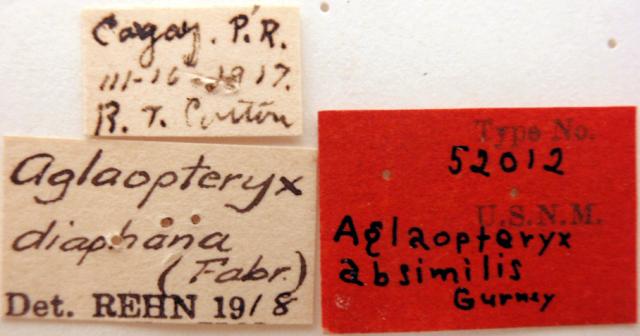 Cagay. P.R.
III-16-1917.
R. T. Cotton
Aglaopteryx
diaphana
(Fabr.)
Det. REHN 1918
Type No.
52012
U.S.N.M.
Aglaopteryx
absimilis
Gurney